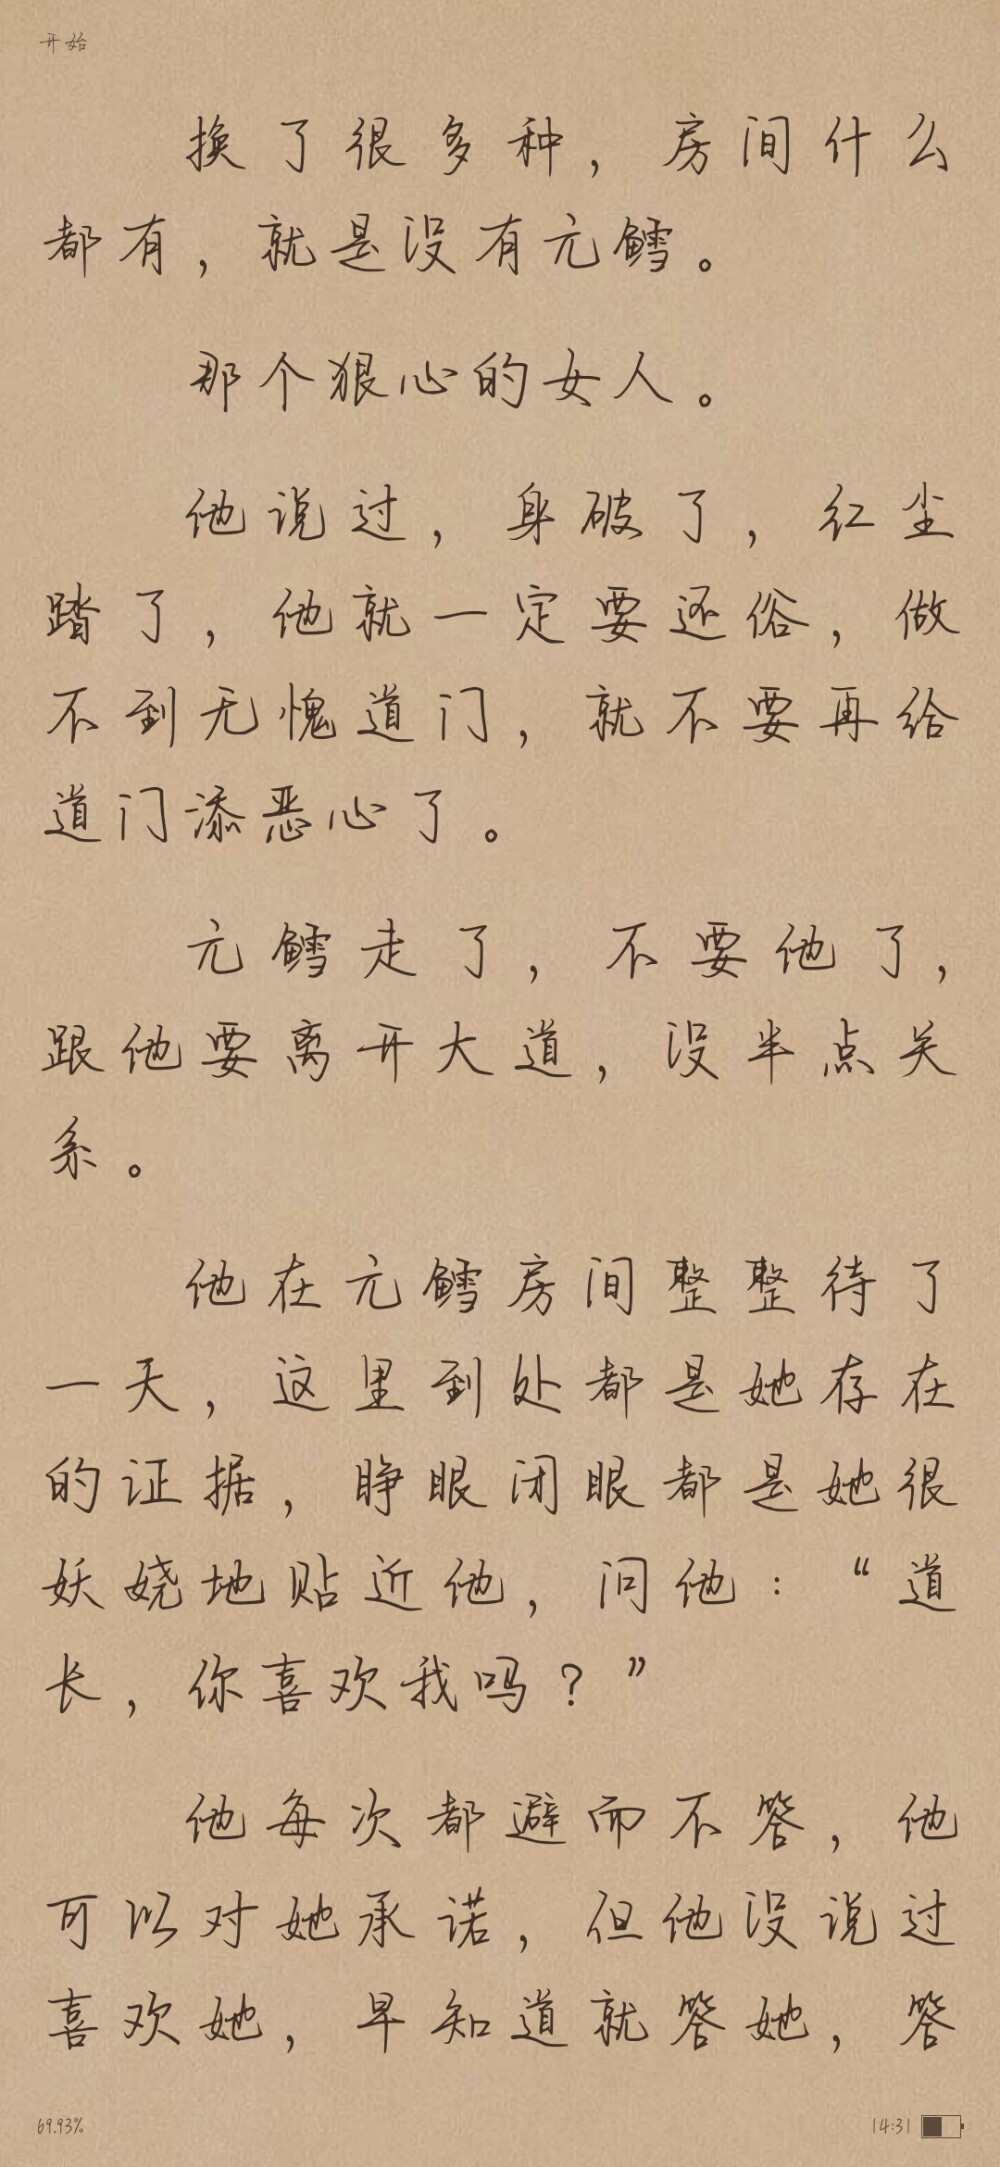 开始
换了很多种，房间什么
都有，就是没有元鳕。
那个狠心的女人。
他说过，身破了，红尘
踏了，他就一定要还俗，做
不到无愧道门，就不要再给
道门添恶心了。
元鳕走了，不要他了，
跟他要离开大道，没半点关
系。
他在元鳕房间整整待了
一天，这里到处都是她存在
的证据，睁眼闭眼都是她很
妖娆地贴近他，问他：“道
长，你喜欢我吗？”
他每次都避而不答，他
可以对她承诺，但他没说过
喜欢她，早知道就答她，答
69.93%
14:31